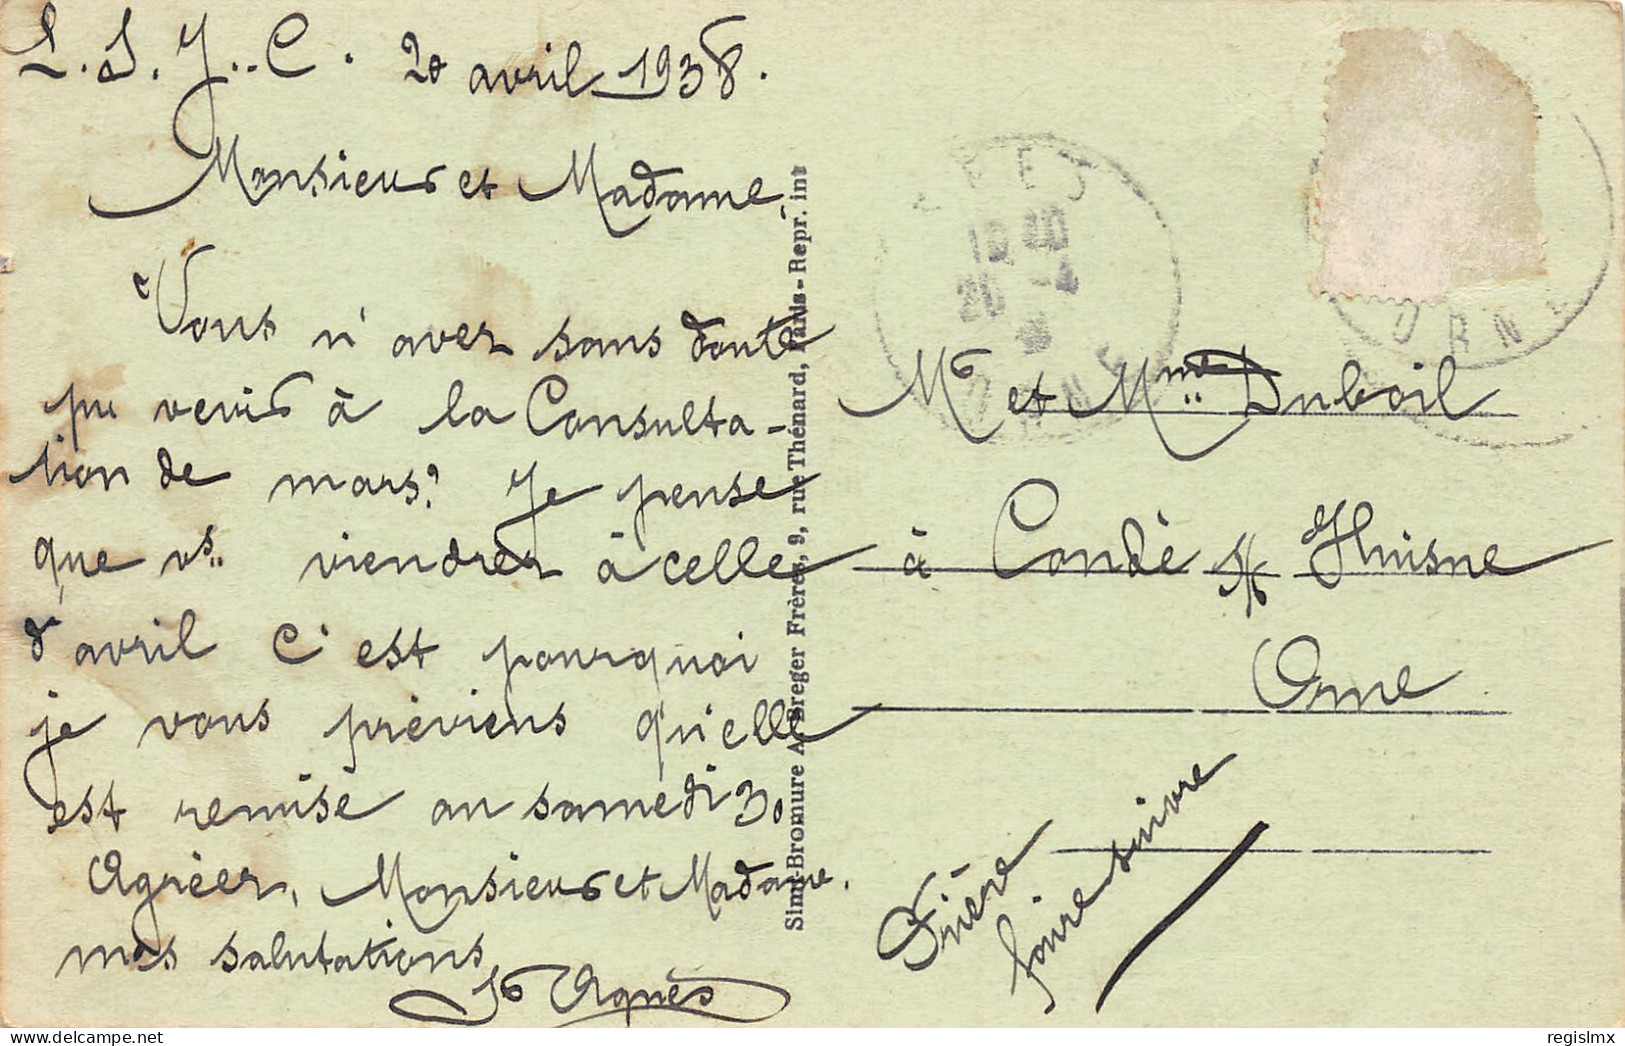 L. S. J.. C. 20 avril 1938.
Monsieur et Madame,
Vous n'avez sans doute
pu venir à la Consulta-
tion de mars? Je pense
que vs.. viendrez à celle
d'avril C'est pourquoi
je vous préviens qu'elle
est remise au samedi 30
Agréez, Monsieur et Madame.
mes salutations
Sr Agnès
Simi-Bromure A. Breger Frères, 9, rue Thénard, Paris - Repr. int
10 40
20 -4
ORNE
ORNE
Mr et Mme.. Duboil
à Condé s/ Huisne
Orne
Prière
faire suivre
regislmx